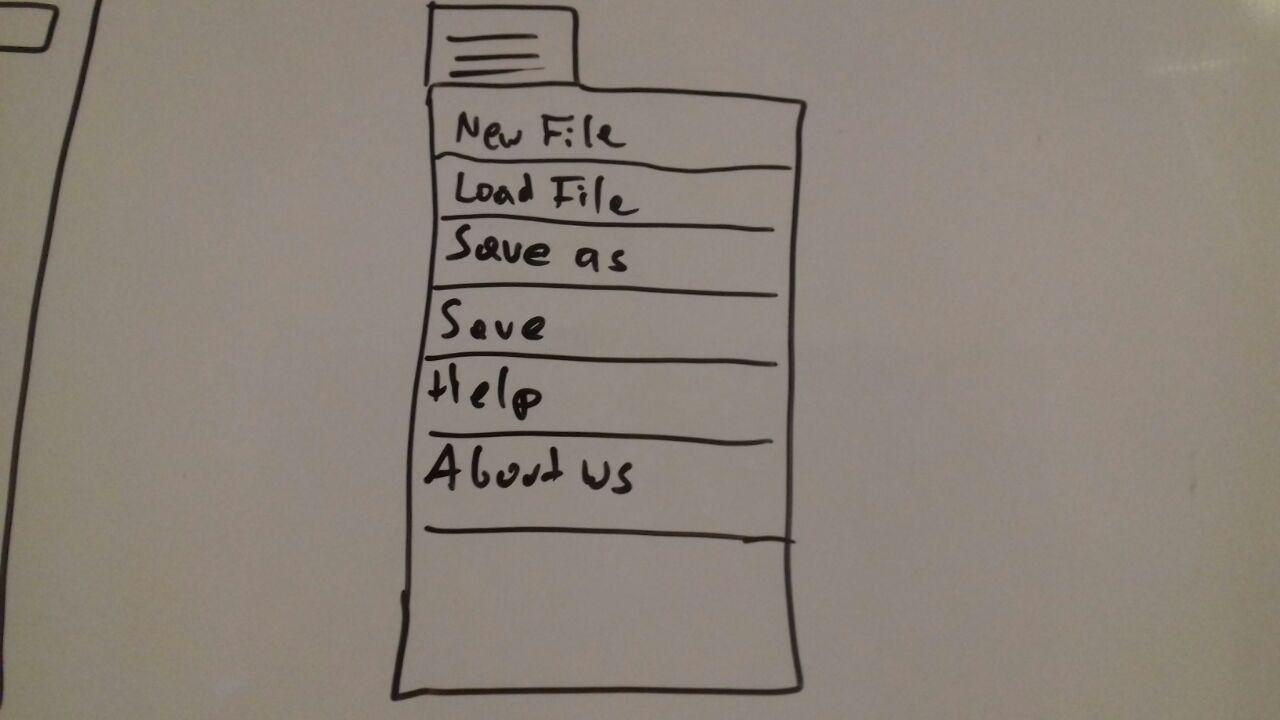 New File
Load File
Save as
Save
Help
About us